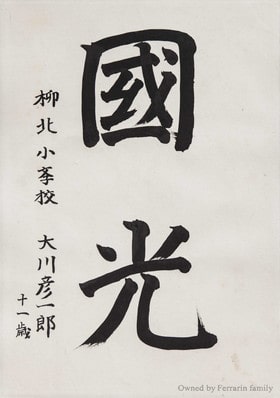 國光
柳北小学校 大川彦一郎
十一歳
Owned by Ferrarin family